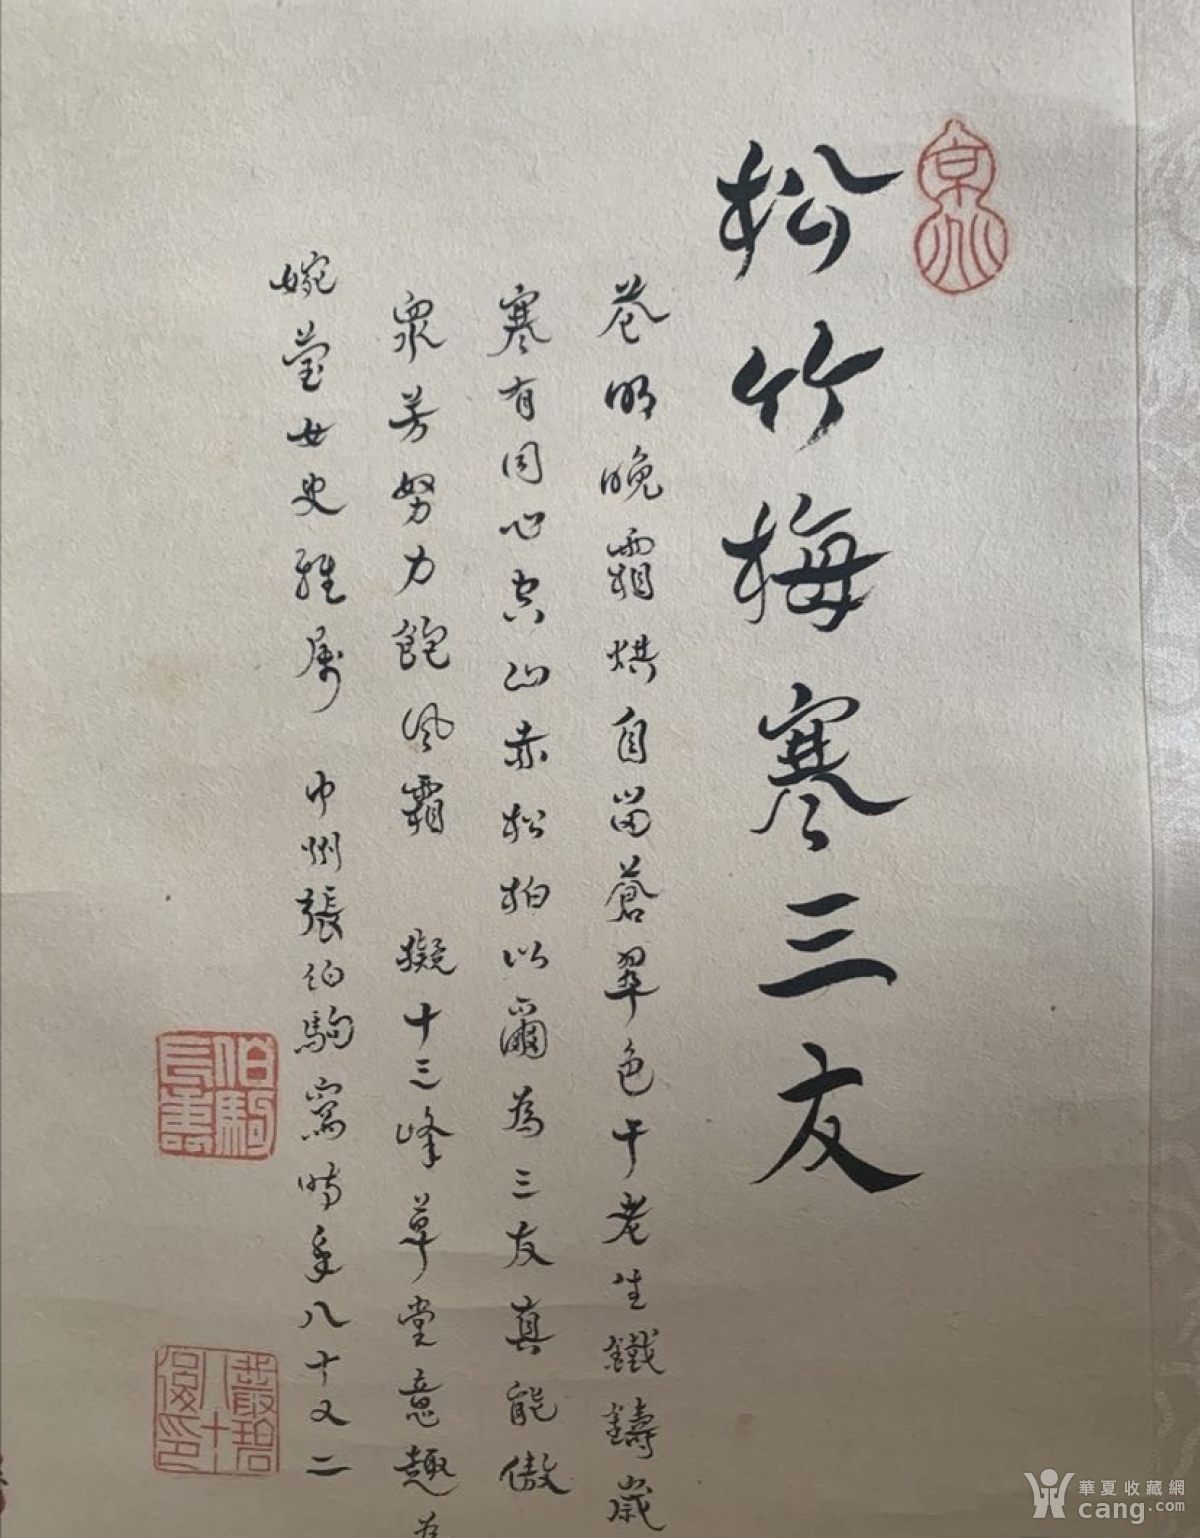 松竹梅寒三友
花明晚霜烘自留蒼翠色干老生鐵鑄歲
寒有同心空山赤松柏以爾為三友真能傲
眾芳努力飽風霜 擬十三峰草堂意趣為
婉瑩女史雅屬 中州張伯駒寫時年八十又二
伯駒長壽
叢碧八十後印
華夏收藏網
cang.com